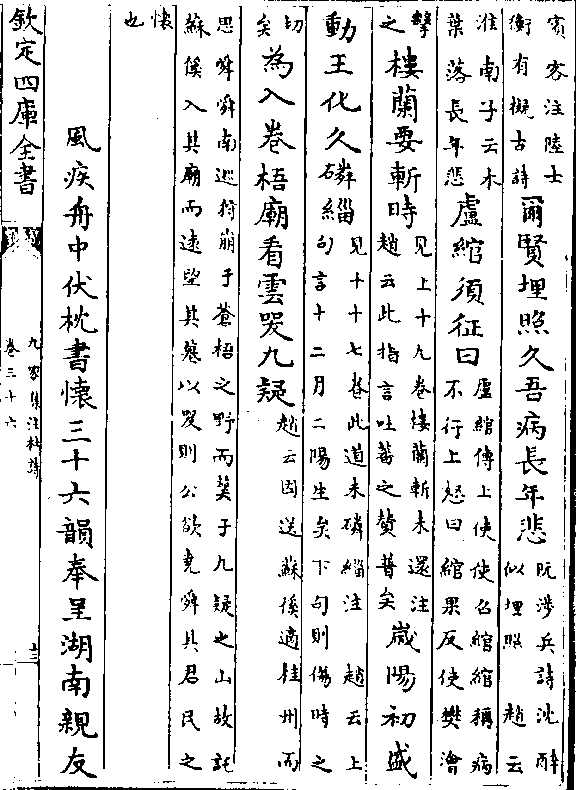 賓客注陸士
衡有擬古詩
爾賢埋照久吾病長年悲
阮渉兵詩沈醉
似埋照 趙云
淮南子云木
葉落長年悲
盧綰須征日
盧綰傳上使使召綰綰稱病
不行上怒曰綰果反使樊噲
擊
之
樓蘭要斬時
見上十九卷樓蘭斬未還注
趙云此指言吐蕃之贊普矣
歲陽初盛
動王化久磷緇
見十十七卷此道未磷緇注 趙云上
句言十二月二陽生矣下句則傷時之
切
矣
為入卷梧廟看雲哭九疑
趙云因送蘇徯適桂州而
思舜舜南巡狩崩于蒼梧之野而葬于九疑之山故託
蘇徯入其廟而遠望其慕以哭則公欲堯舜其君民之
懷
也
風疾舟中伏枕書懷三十六韻奉呈湖南親友
欽定四庫全書
九家集注杜詩
卷三十六
十三